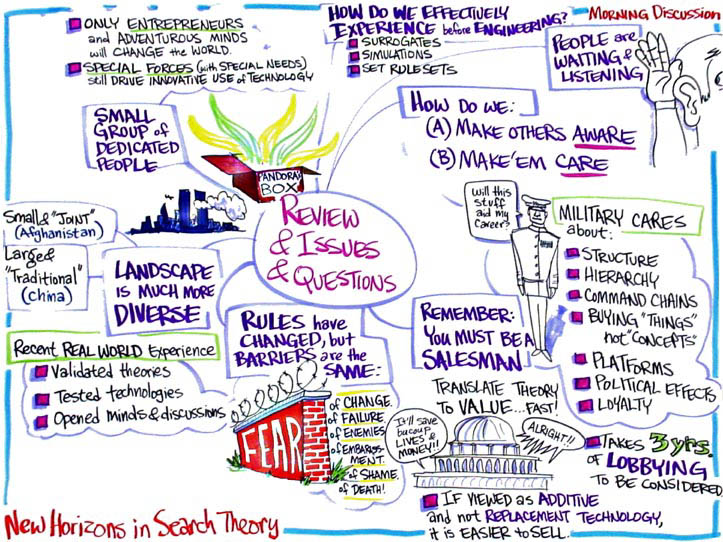 ONLY ENTREPRENEURS
and ADVENTUROUS MINDS
will CHANGE the WORLD.
SPECIAL FORCES (with SPECIAL NEEDS)
still DRIVE INNOVATIVE USE of TECHNOLOGY
SMALL
GROUP of
DEDICATED
PEOPLE
PANDORA'S
BOX
HOW DO WE EFFECTIVELY
EXPERIENCE before ENGINEERING?
SURROGATES
SIMULATIONS
SET RULESETS
MORNING DISCUSSION
PEOPLE are
WAITING &
LISTENING
HOW DO WE:
(A) MAKE OTHERS AWARE
(B) MAKE 'EM CARE
REVIEW
& ISSUES
& QUESTIONS
Small & "JOINT"
(Afghanistan)
Large &
"Traditional"
(China)
LANDSCAPE
IS MUCH MORE
DIVERSE
Recent REAL WORLD Experience
Validated theories
Tested technologies
Opened Minds & discussions
RULES have
CHANGED, but
BARRIERS are the
SAME:
FEAR
of CHANGE.
of FAILURE.
of ENEMIES.
of EMBARASS-
MENT.
of SHAME.
of DEATH!
Will this
stuff
aid my
career?
MILITARY CARES
about:
STRUCTURE
HIERARCHY
COMMAND CHAINS
BUYING "THINGS"
not "CONCEPTS"
PLATFORMS
POLITICAL EFFECTS
LOYALTY
REMEMBER:
YOU MUST BE A
SALESMAN
TRANSLATE THEORY
TO VALUE...FAST!
It'll save
bucoup
LIVES &
MONEY!!
ALRIGHT!!
TAKES 3 yrs.
of LOBBYING
TO BE CONSIDERED
IF VIEWED AS ADDITIVE
and not REPLACEMENT TECHNOLOGY,
it is EASIER to SELL.
New Horizons in Search Theory